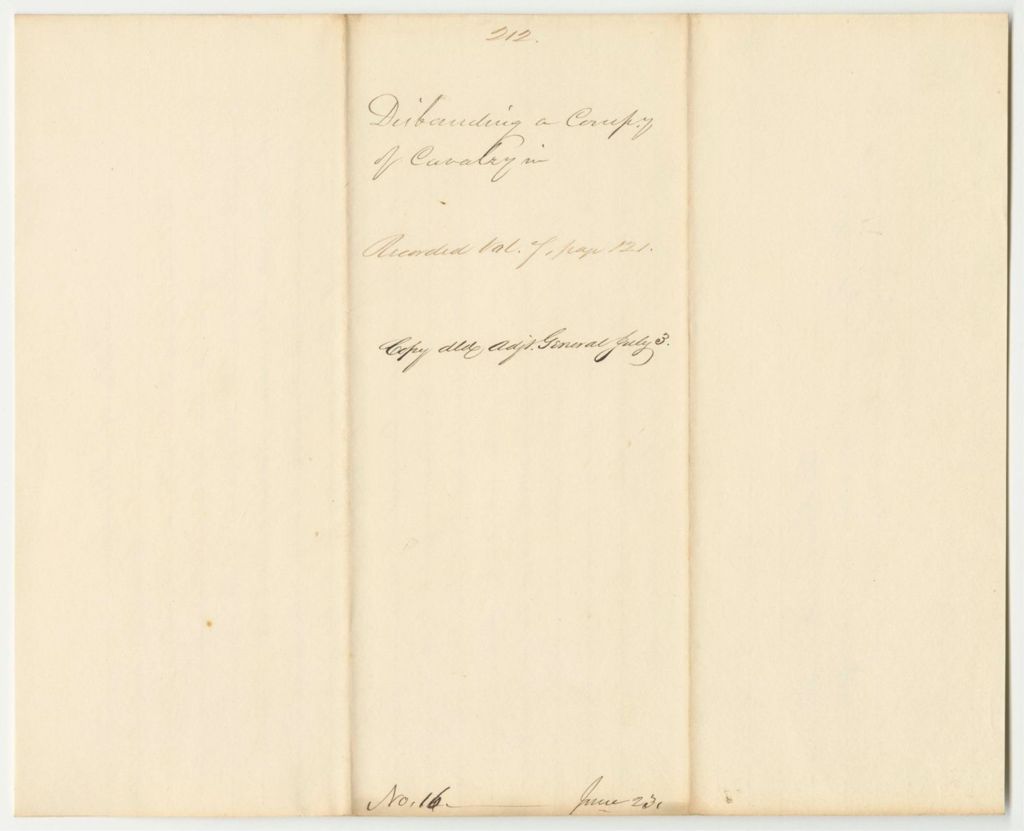 212.
Disbanding a Comp.y
of Cavalry in
Recorded Vol. 7, page 121.
Copy dld Adjt. General July 3.
No. 16. June 23.